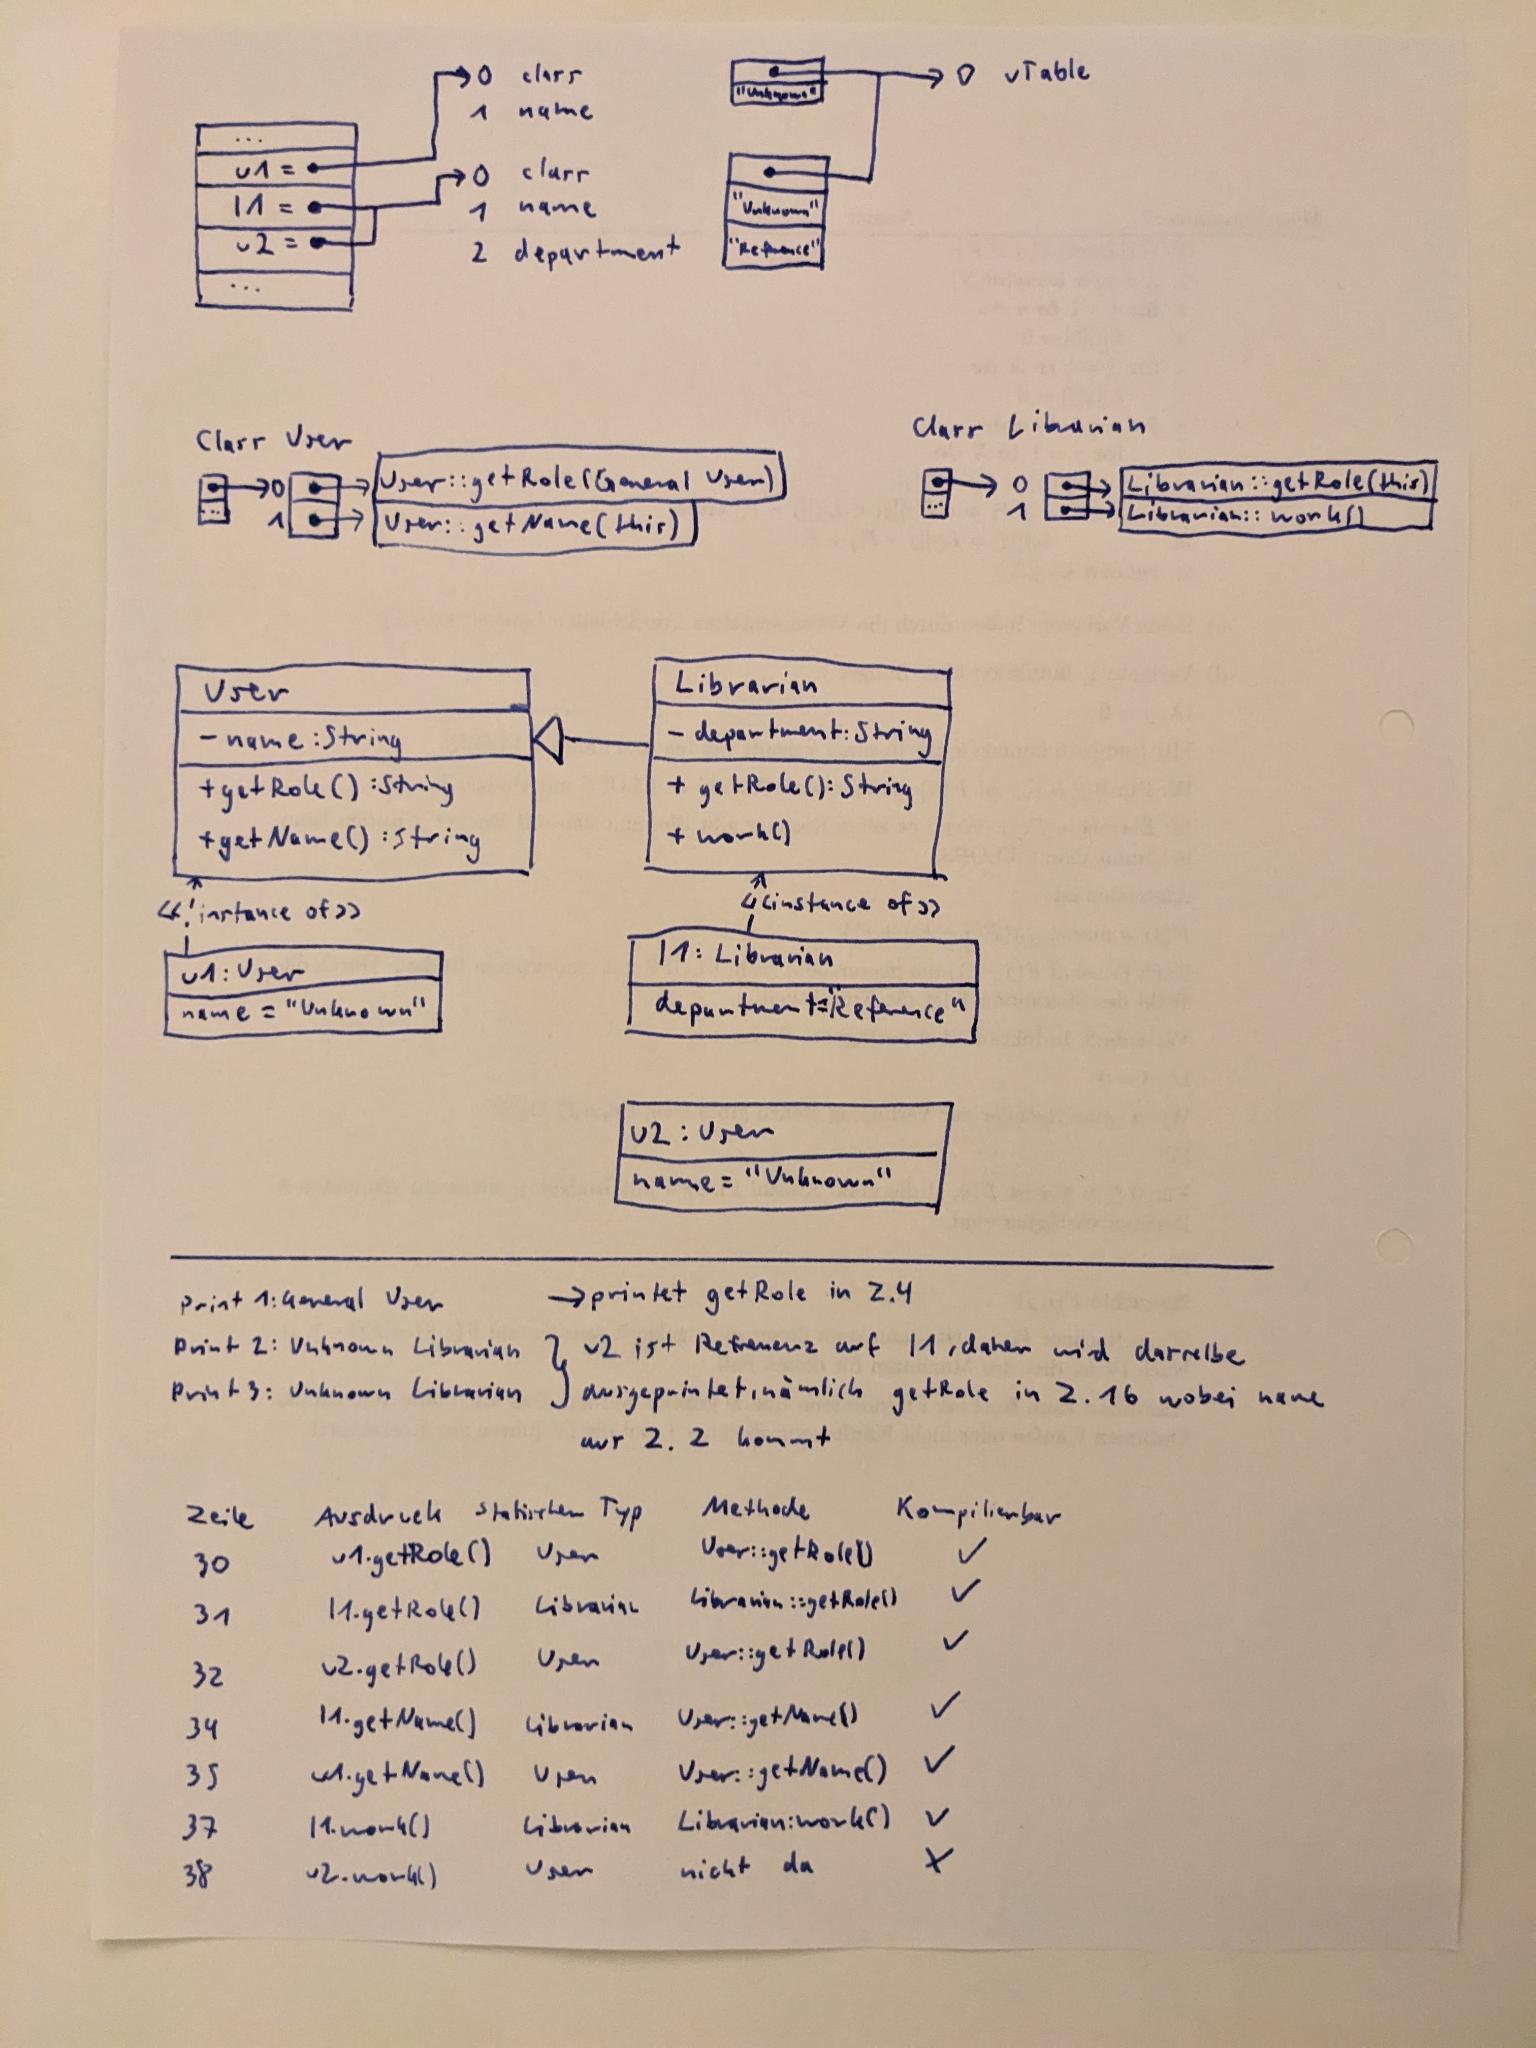 0 class
1 name
...
u1 =
l1 =
u2 =
...
0 class
1 name
2 department
"Unknown"
0 vTable
"Unknown"
"Reference"
Class User
...
0
1
User::getRole(General User)
User::getName(this)
Class Librarian
...
0
1
Librarian::getRole(this)
Librarian::work()
User
- name : String
+ getRole() : String
+ getName() : String
Librarian
- department : String
+ getRole() : String
+ work()
<<instance of>>
<<instance of>>
u1 : User
name = "Unknown"
l1 : Librarian
department = "Reference"
u2 : User
name = "Unknown"
Print 1: General User → printet getRole in Z.4
Print 2: Unknown Librarian } u2 ist Referenz auf l1, daher wird dasselbe
Print 3: Unknown Librarian } ausgeprintet, nämlich getRole in Z.16 wobei name
aus Z. 2 kommt
Zeile Ausdruck statischer Typ Methode Kompilierbar
30 u1.getRole() User User::getRole() ✓
31 l1.getRole() Librarian Librarian::getRole() ✓
32 u2.getRole() User User::getRole() ✓
34 l1.getName() Librarian User::getName() ✓
35 u1.getName() User User::getName() ✓
37 l1.work() Librarian Librarian:work() ✓
38 u2.work() User nicht da ✗